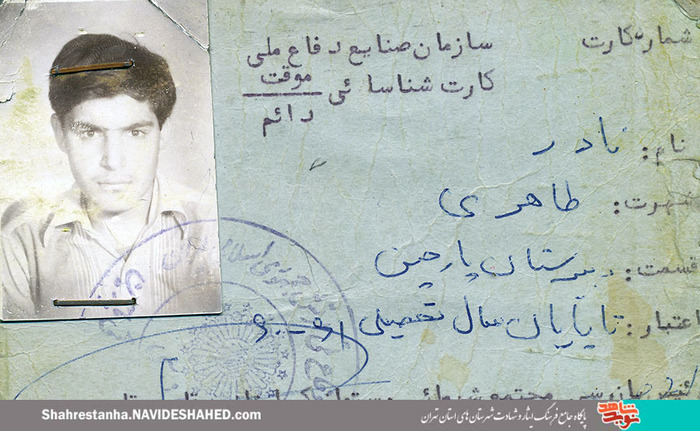 شماره کارت
سازمان صنایع دفاع ملی
کارت شناسائی موقت
دائم
نام: نادر
شهرت: طاهری
قسمت: دبیرستان پارچین
اعتبار: تا پایان سال تحصیلی
Shahrestanha.NAVIDESHAHED.com
پایگاه جامع فرهنگ ایثار و شهادت شهرستان های استان تهران
نوید شاهد